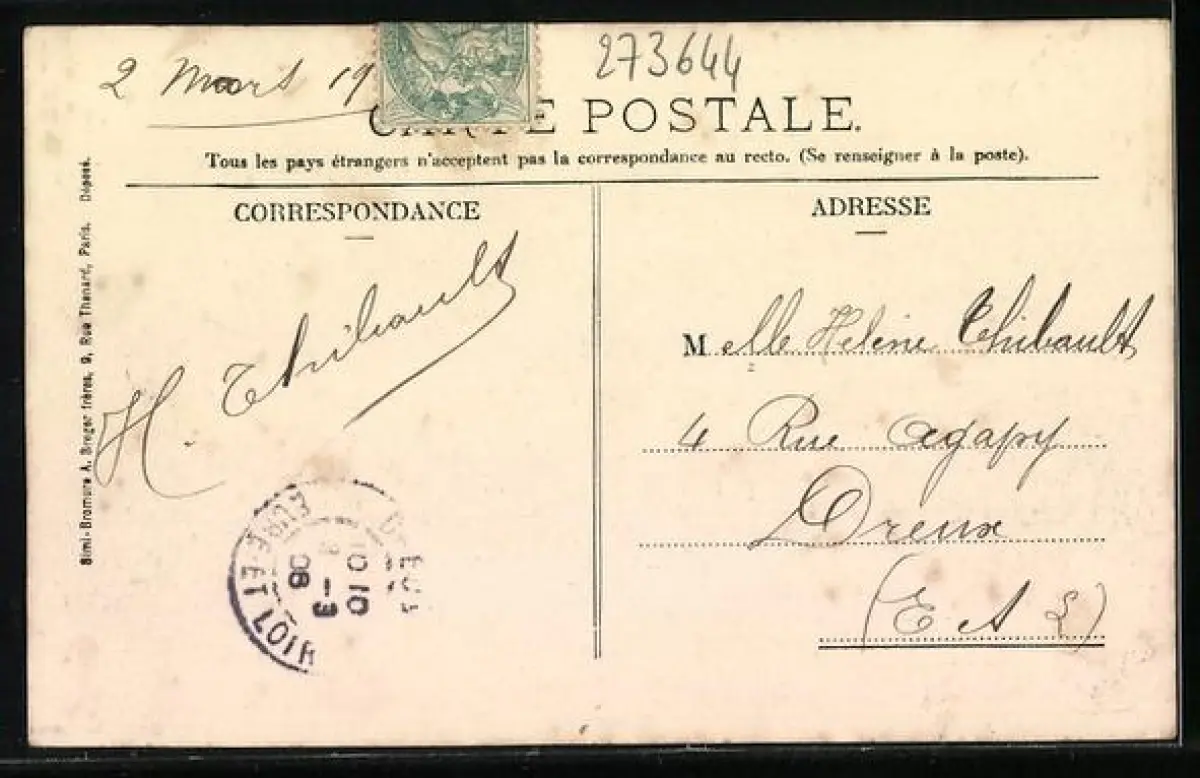 2 Mars 19
273644
CARTE POSTALE.
Tous les pays étrangers n'acceptent pas la correspondance au recto. (Se renseigner à la poste).
CORRESPONDANCE
H. Thibault
ADRESSE
Melle Helène Thibault
4 Rue Agapy
Dreux
(E A L)
Simi-Bromure A. Breger frères, 9, Rue Thenard, Paris. Déposé.
EURE-ET-LOIR
10 10
-3
08